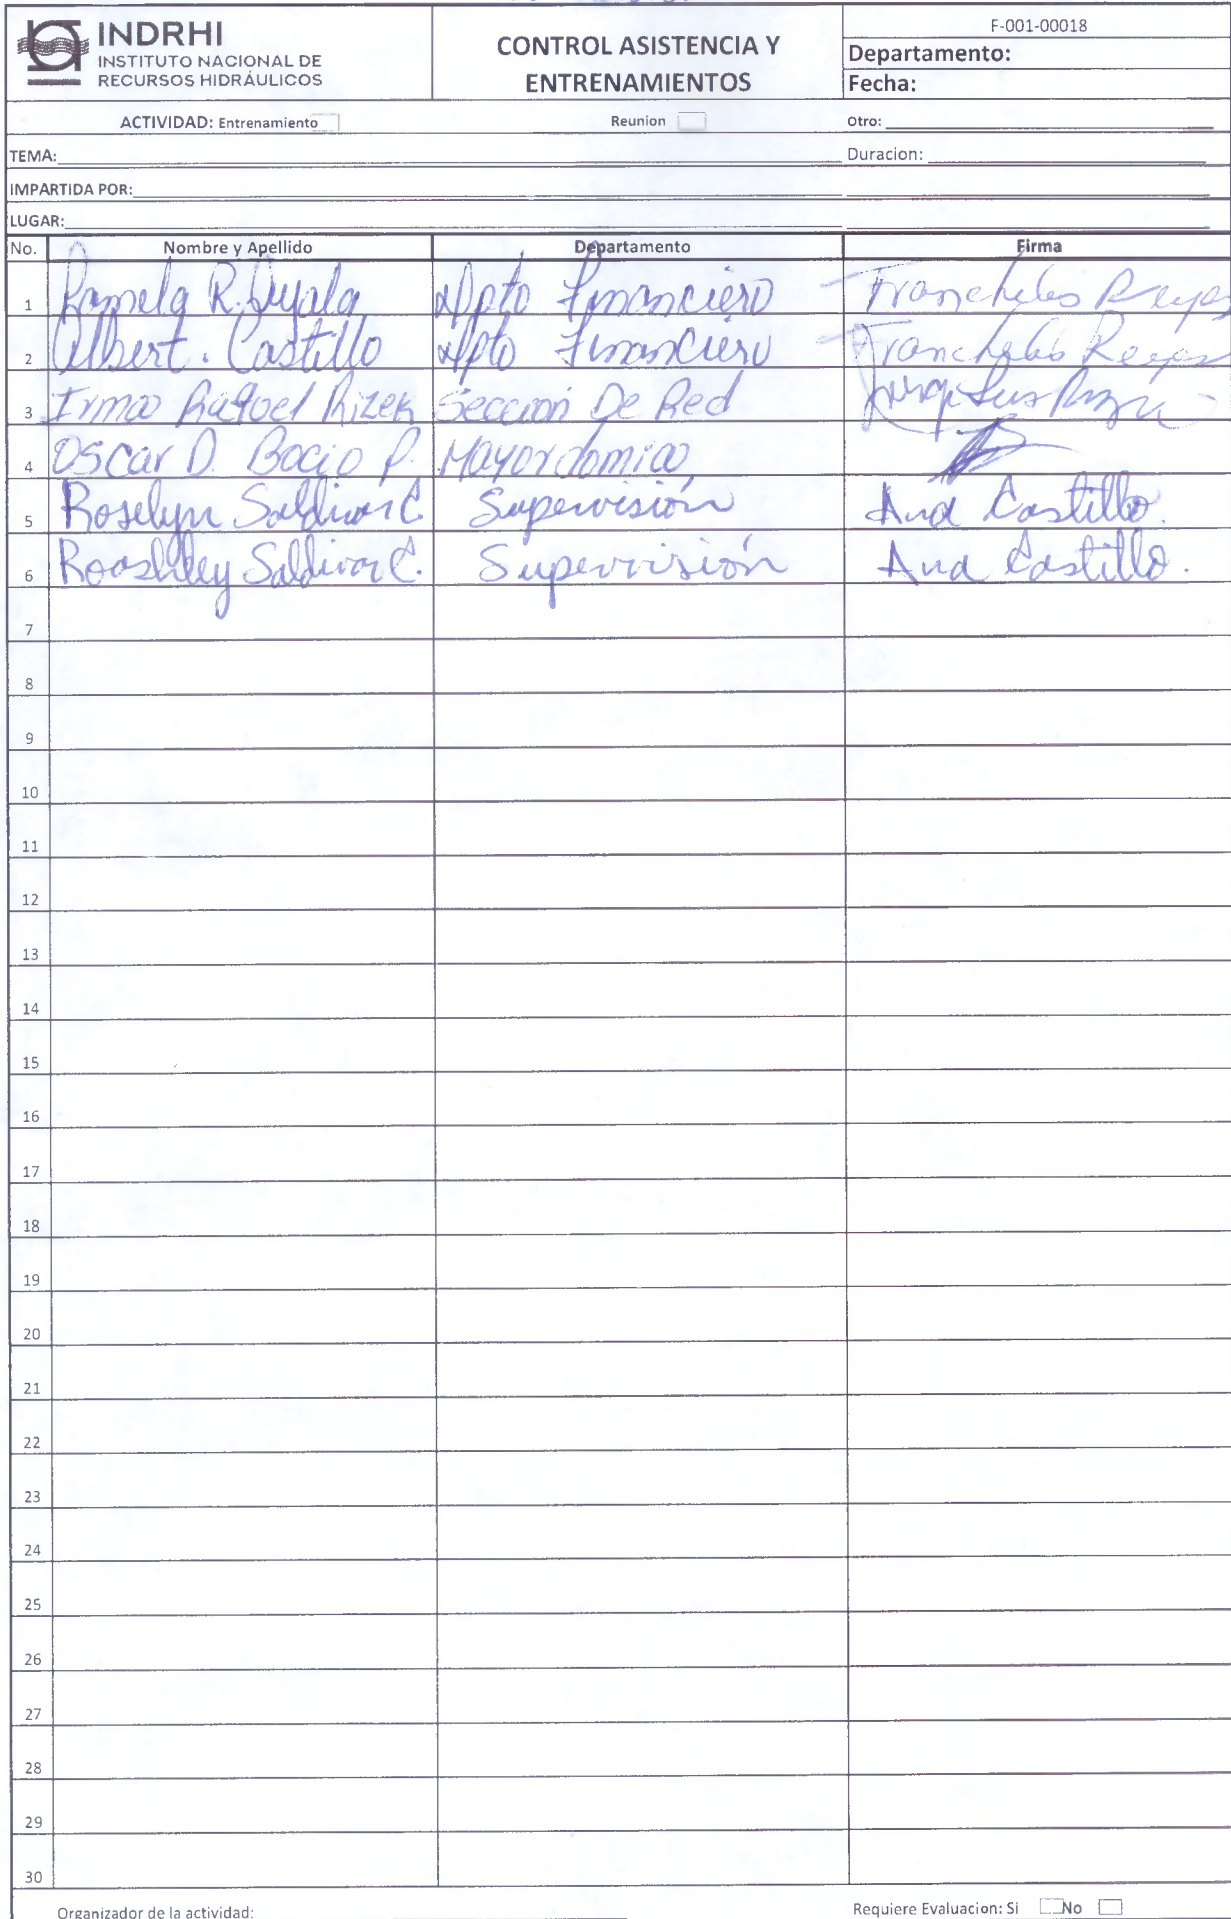 INDRHI
INSTITUTO NACIONAL DE
RECURSOS HIDRÁULICOS
CONTROL ASISTENCIA Y
ENTRENAMIENTOS
F-001-00018
Departamento:
Fecha:
ACTIVIDAD: Entrenamiento Reunion Otro:
TEMA: Duracion:
IMPARTIDA POR:
LUGAR:
No. Nombre y Apellido Departamento Firma
1 Pamela R. Ayala Dpto Financiero Reyes
2 Albert. Castillo Dpto Financiero Reyes
3 Irma Rafael Rizek Sección De Red
4 Oscar D. Bocio P. Mayordomia
5 Roselyn Saldivar C. Supervisión Ana Castillo.
6 Roashley Saldivar C. Supervisión Ana Castillo.
7
8
9
10
11
12
13
14
15
16
17
18
19
20
21
22
23
24
25
26
27
28
29
30
Organizador de la actividad: Requiere Evaluacion: Si No